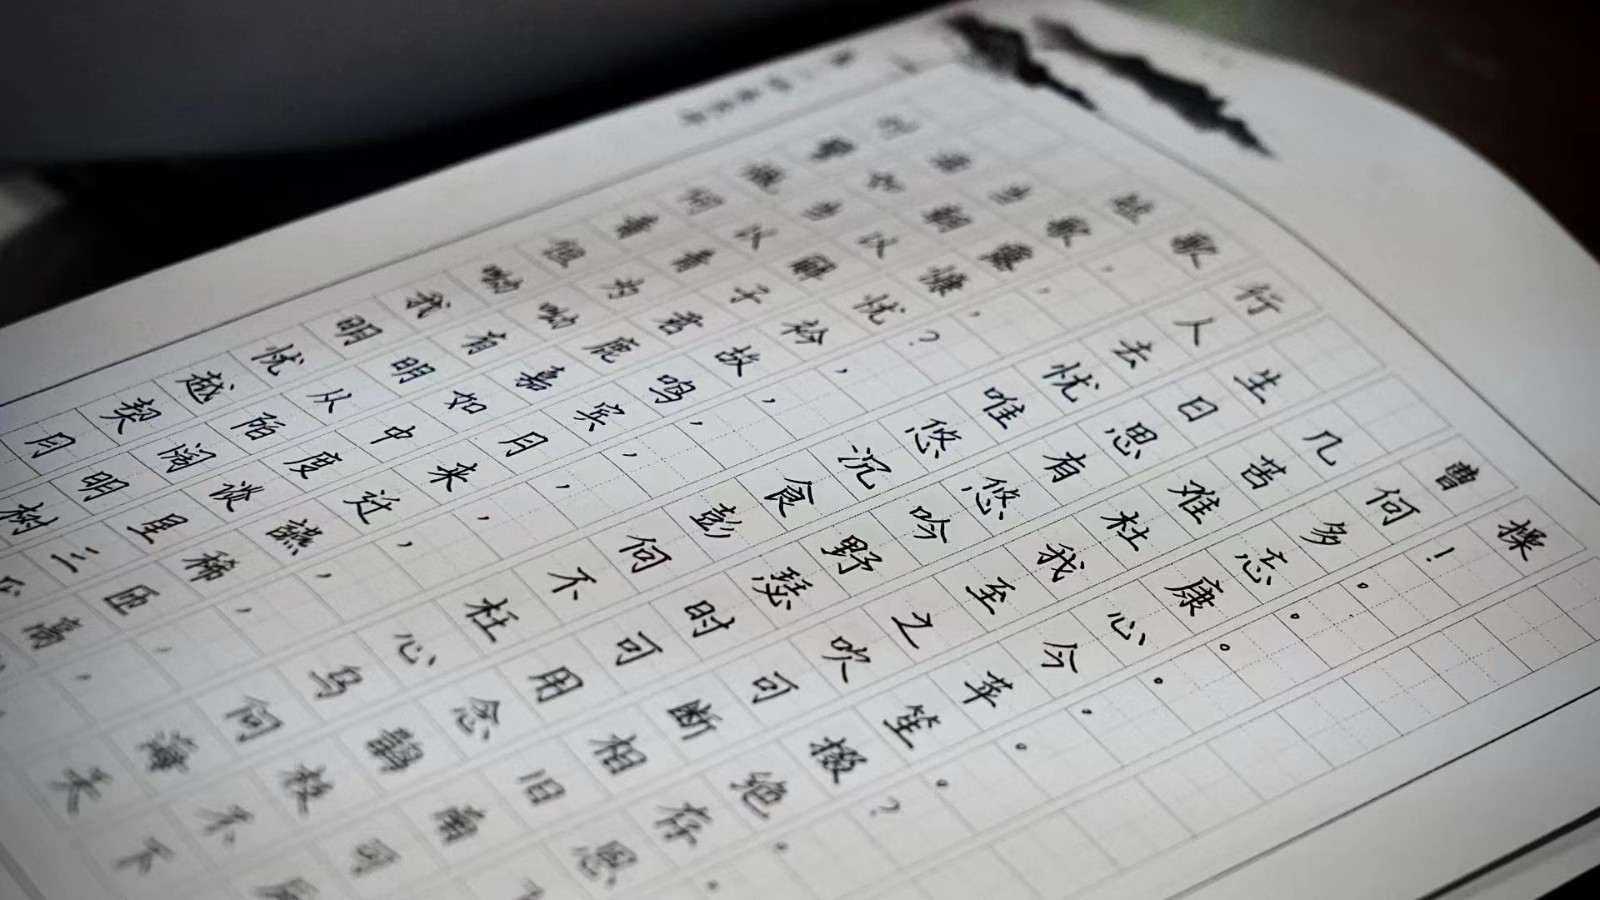 短歌行 曹操
对酒当歌，人生几何！
譬如朝露，去日苦多。
慨当以慷，忧思难忘。
何以解忧？唯有杜康。
青青子衿，悠悠我心。
但为君故，沉吟至今。
呦呦鹿鸣，食野之苹。
我有嘉宾，鼓瑟吹笙。
明明如月，何时可掇？
忧从中来，不可断绝。
越陌度阡，枉用相存。
契阔谈讌，心念旧恩
月明星稀，乌鹊南
树三匝，何枝可
高，海不厌
天下